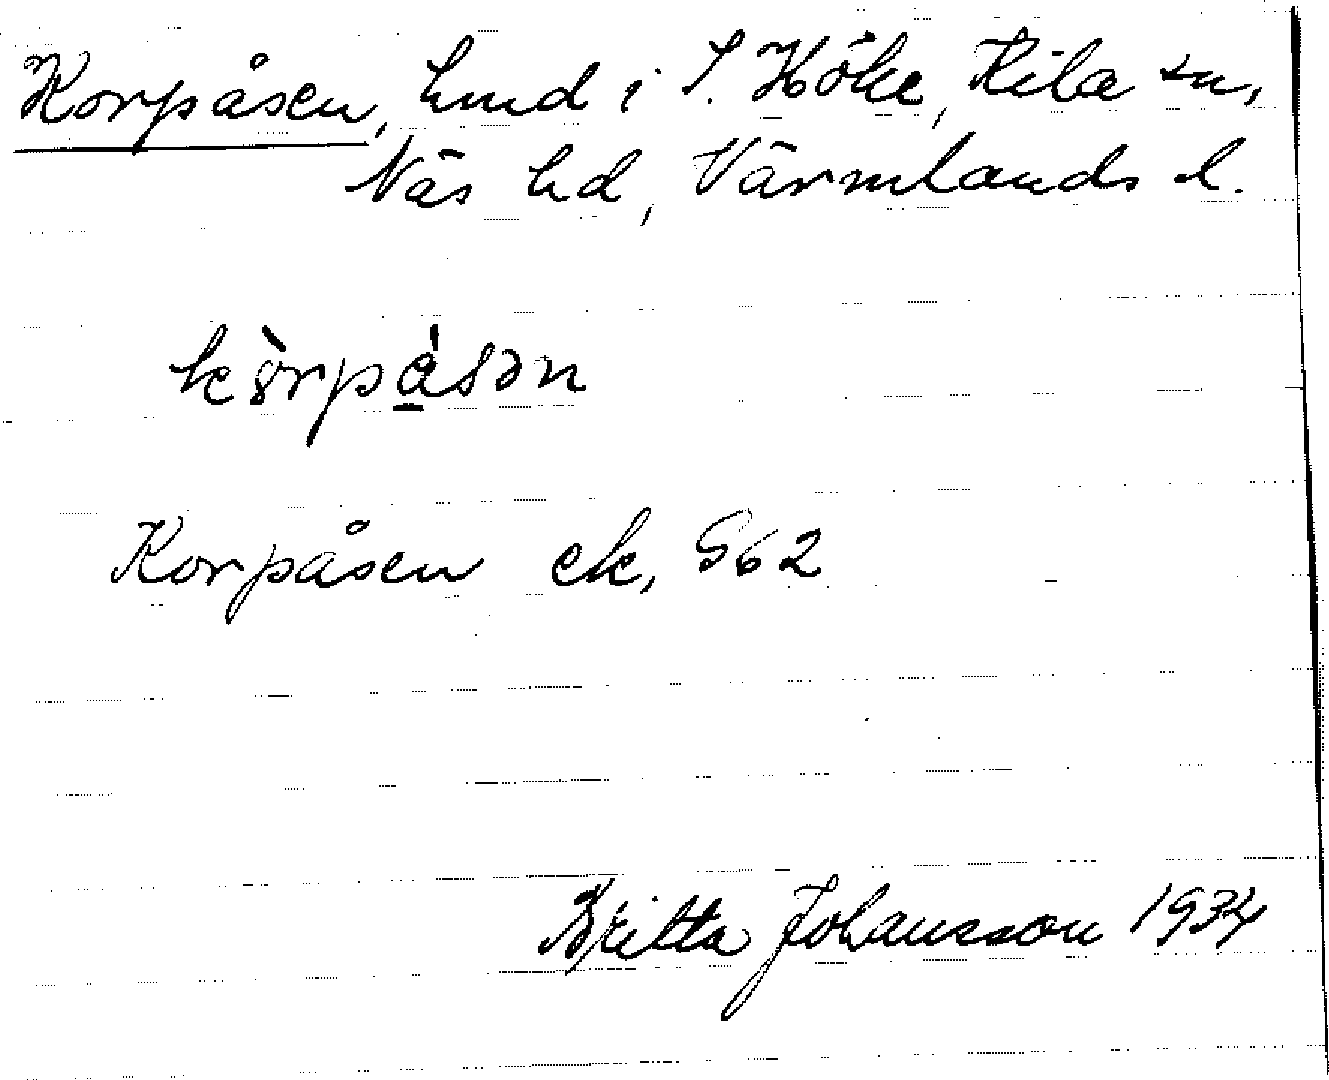 Korpåsen, hmd i S. Höke, Kila sn,
Näs hd, Värmlands l.
kòrpåsən
Korpåsen ek, G62
Britta Johansson 1934